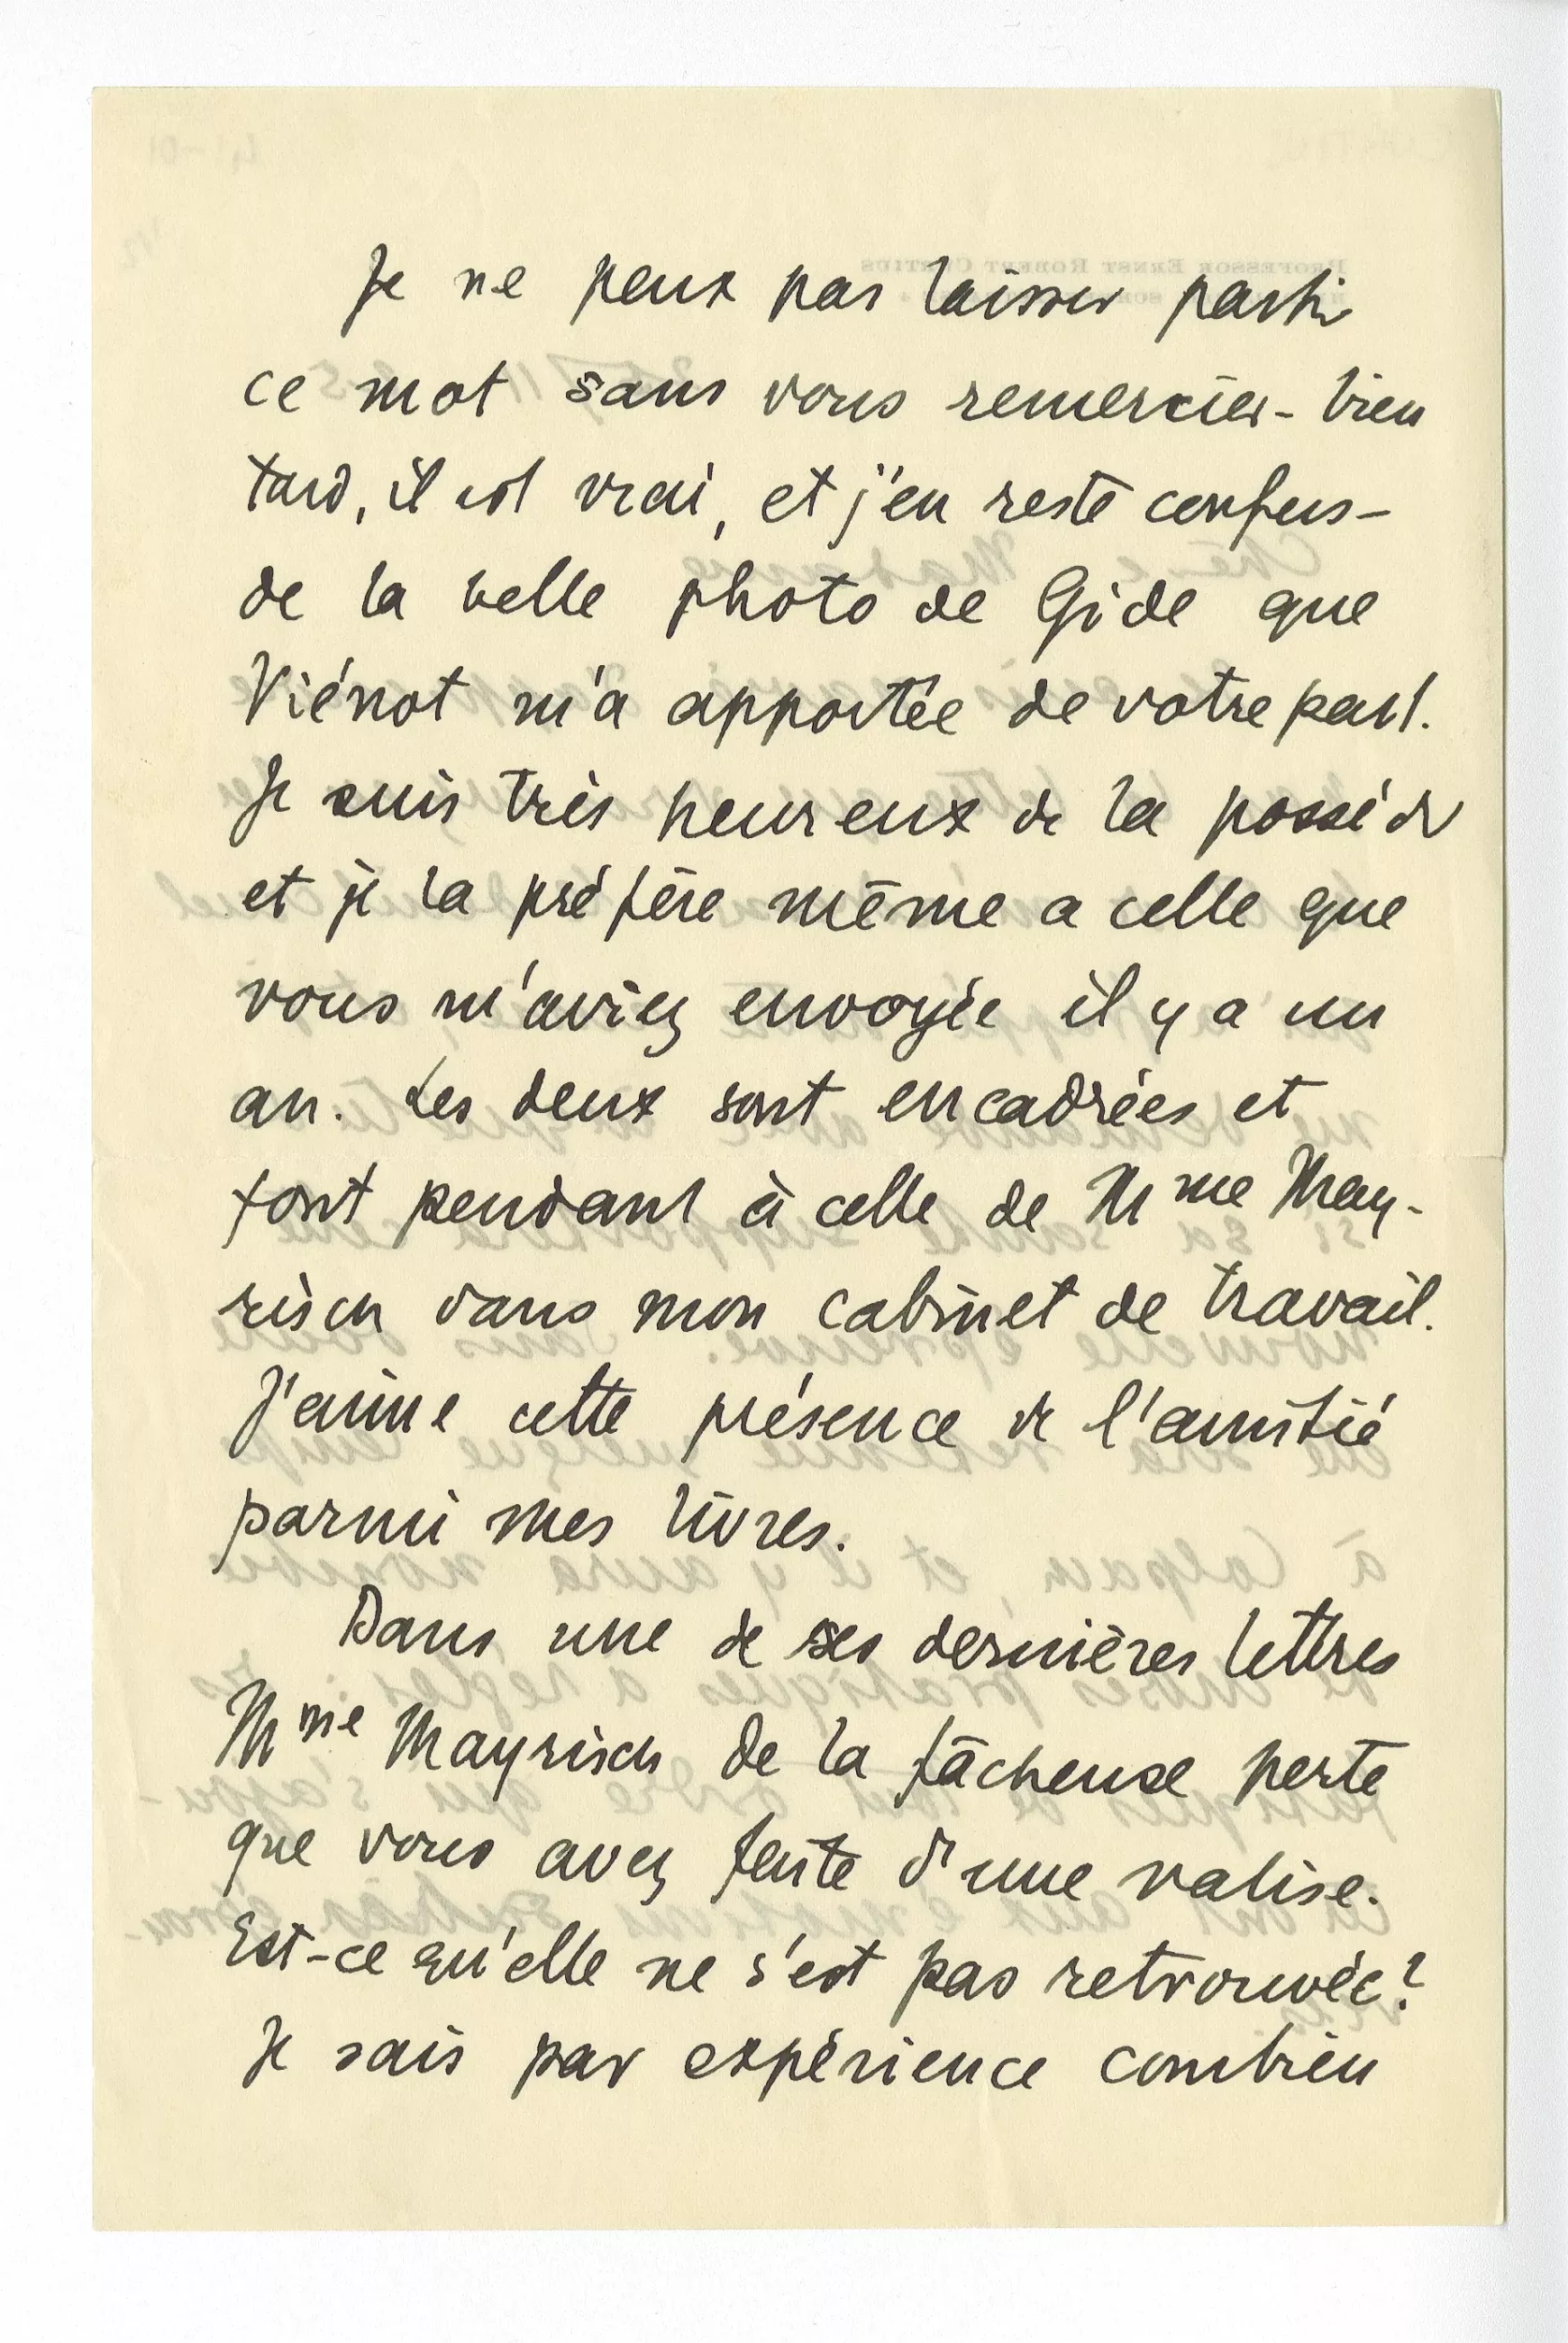 Je ne peux pas laisser partir
ce mot sans vous remercier - bien
tard, il est vrai, et j'en reste confus -
de la belle photo de Gide que
Viénot m'a apportée de votre part.
Je suis très heureux de la posséder
et je la préfère même a celle que
vous m'aviez envoyée il y a un
an. Les deux sont encadrées et
font pendant à celle de Mme May-
risch dans mon cabinet de travail.
J'aime cette présence de l'amitié
parmi mes livres.
Dans une de ses dernières lettres
Mme Mayrisch de la fâcheuse perte
que vous avez faite d'une valise.
Est-ce qu'elle ne s'est pas retrouvée?
Je sais par expérience combien